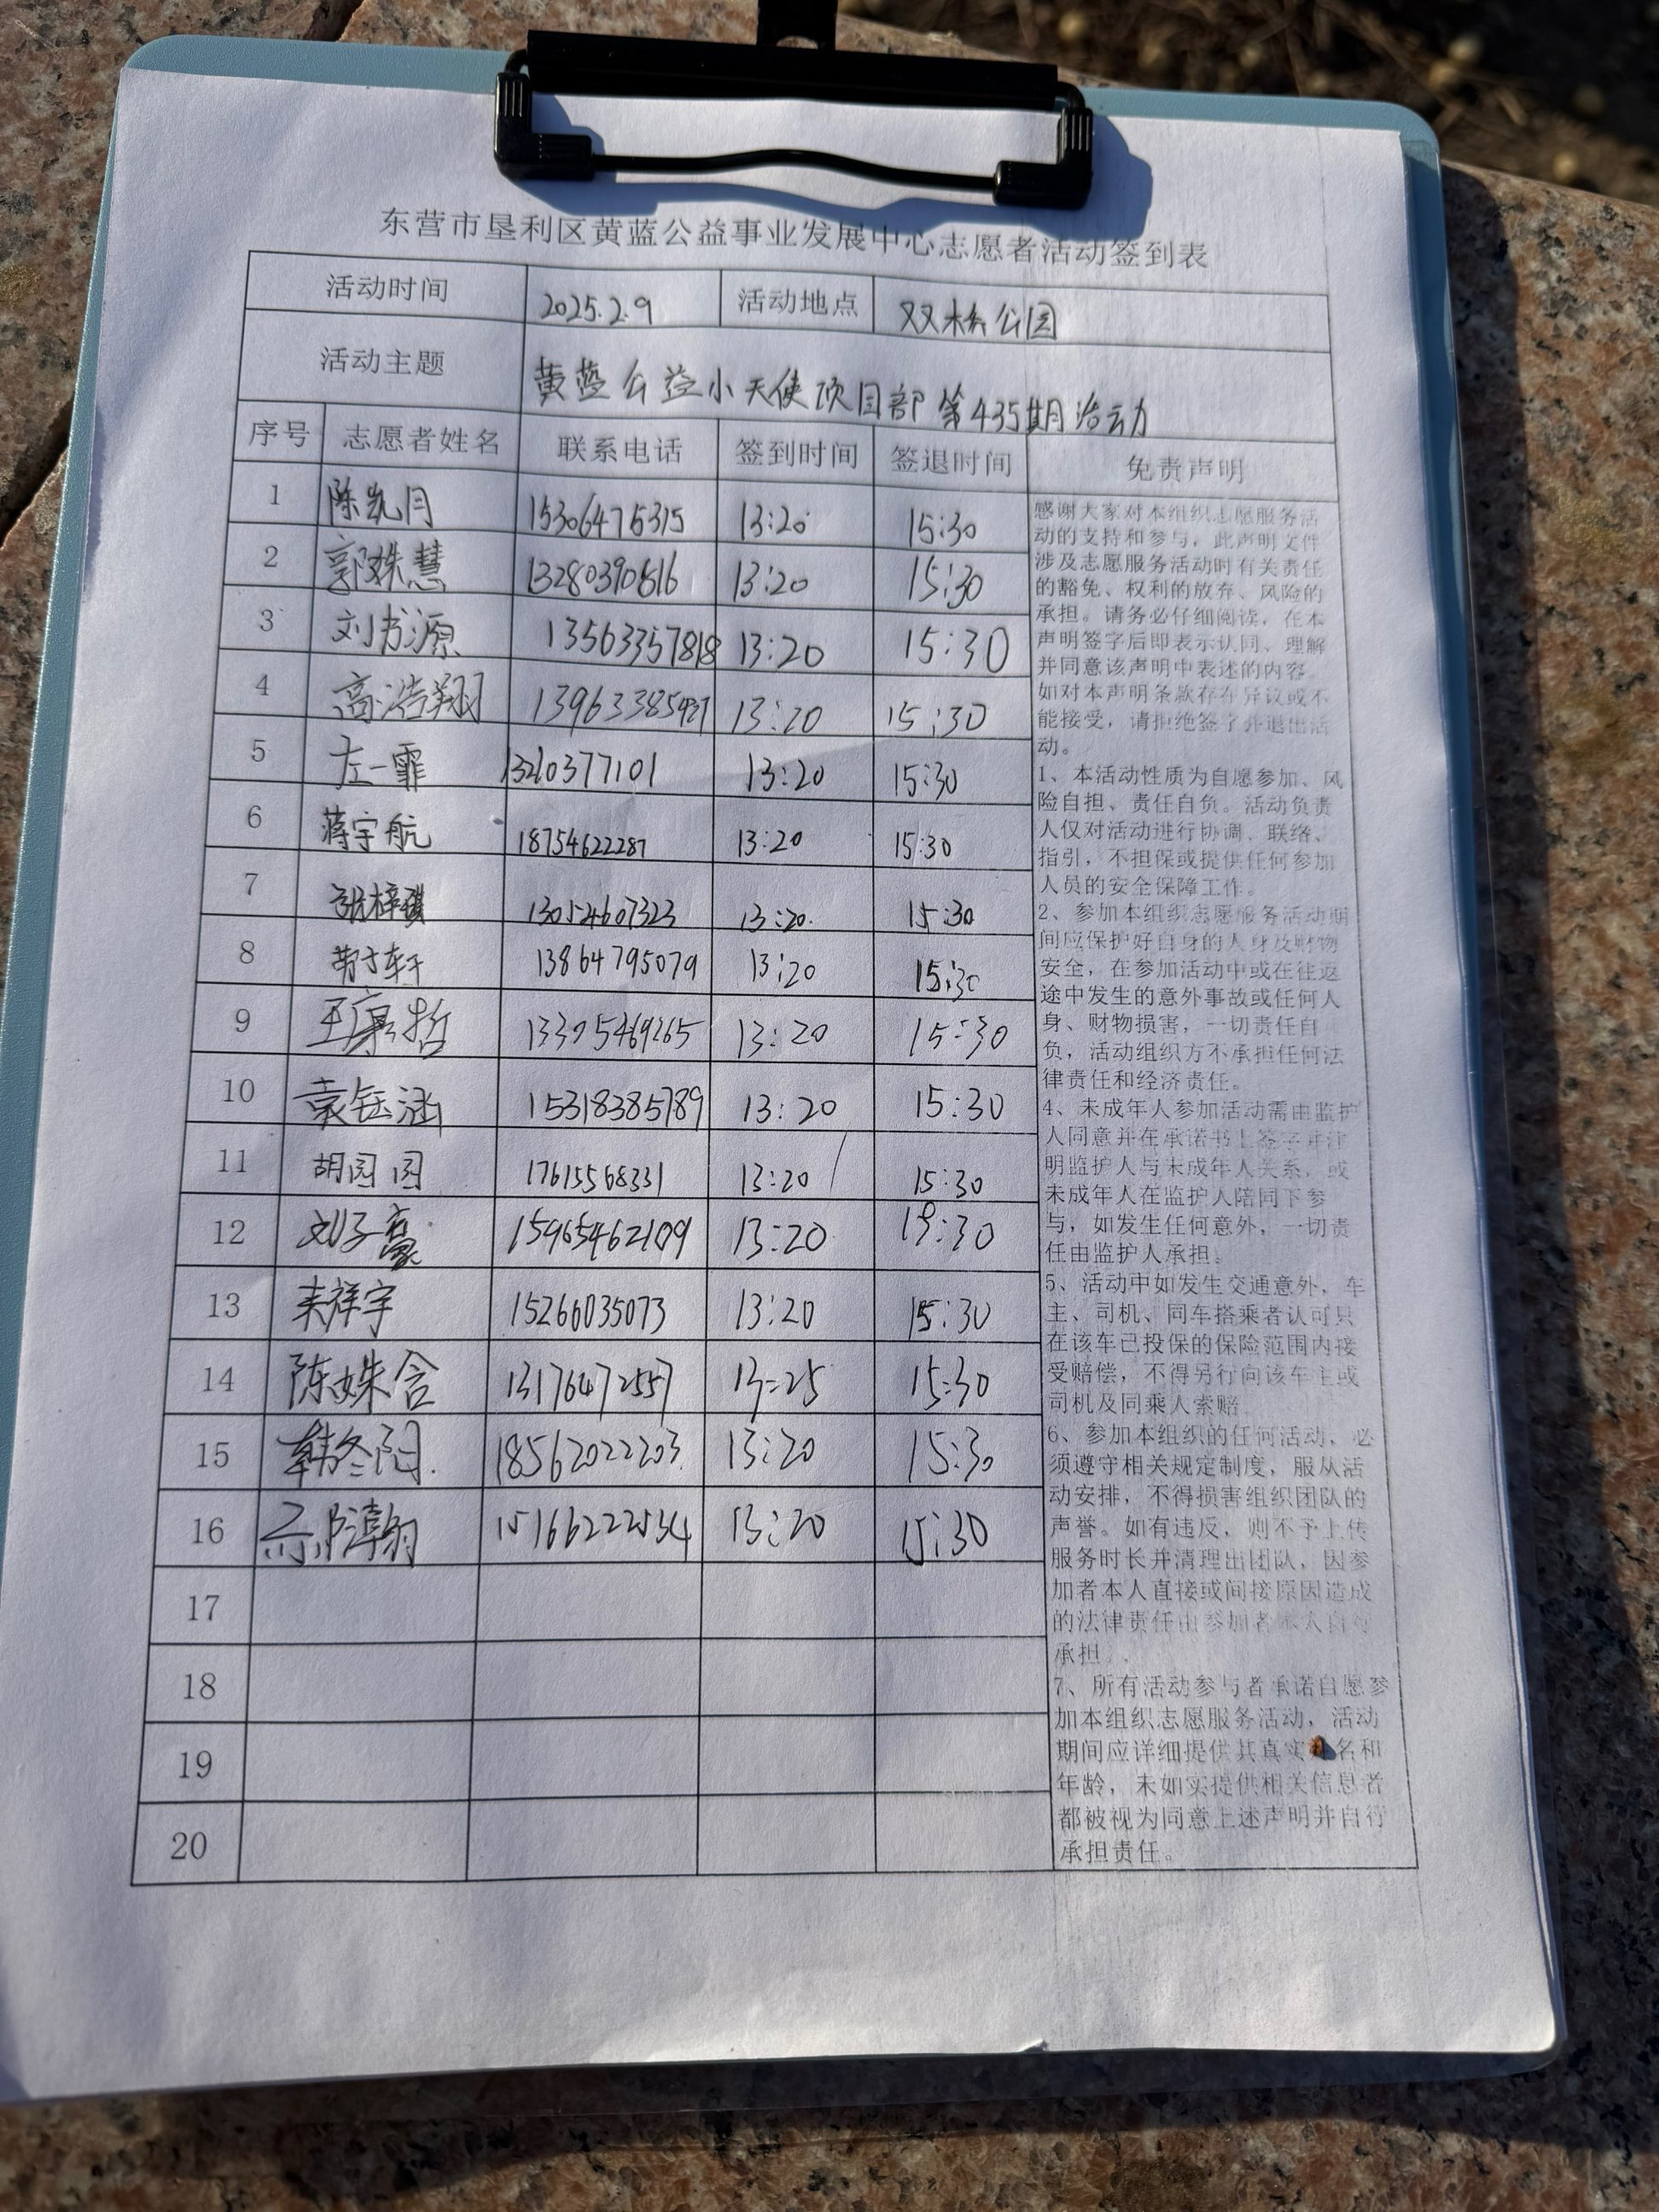 东营市垦利区黄蓝公益事业发展中心志愿者活动签到表
活动时间 2025.2.9 活动地点 双桥公园
活动主题 黄蓝公益小天使项目部第435期活动
序号 志愿者姓名 联系电话 签到时间 签退时间 免责声明
1 陈凯月 15306475315 13:20 15:30
2 郭姝慧 13280390616 13:20 15:30
3 刘书源 13563357818 13:20 15:30
4 高浩翔 13:20 15:30
5 左一霏 13:20 15:30
6 蒋宇航 18754622287 13:20 15:30
7 张梓琪 13054607323 13:20 15:30
8 13864795079 13:20 15:30
9 13305469265 13:20 15:30
10 袁钰涵 15318385789 13:20 15:30
11 胡园园 17615568331 13:20 15:30
12 刘子豪 15965462109 13:20 15:30
13 来祥宇 15266035073 13:20 15:30
14 陈姝含 13176472557 13:25 15:30
15 韩冬阳 18562022203 13:20 15:30
16 15166222534 13:20 15:30
17
18
19
20
感谢大家对本组织志愿服务活
动的支持和参与，此声明文件
涉及志愿服务活动时有关责任
的豁免、权利的放弃、风险的
承担。请务必仔细阅读，在本
声明签字后即表示认同、理解
并同意该声明中表述的内容。
如对本声明条款存在异议或不
能接受，请拒绝签字并退出活
动。
1、本活动性质为自愿参加、风
险自担、责任自负。活动负责
人仅对活动进行协调、联络、
指引，不担保或提供任何参加
人员的安全保障工作。
2、参加本组织志愿服务活动期
间应保护好自身的人身及财物
安全，在参加活动中或在往返
途中发生的意外事故或任何人
身、财物损害，一切责任自
负，活动组织方不承担任何法
律责任和经济责任。
4、未成年人参加活动需由监护
人同意并在承诺书上签字并注
明监护人与未成年人关系，或
未成年人在监护人陪同下参
与，如发生任何意外，一切责
任由监护人承担。
5、活动中如发生交通意外，车
主、司机、同车搭乘者认可只
在该车已投保的保险范围内接
受赔偿，不得另行向该车主或
司机及同乘人索赔
6、参加本组织的任何活动，必
须遵守相关规定制度，服从活
动安排，不得损害组织团队的
声誉。如有违反，则不予上传
服务时长并清理出团队，因参
加者本人直接或间接原因造成
的法律责任由参加者本人自行
承担。
7、所有活动参与者承诺自愿参
加本组织志愿服务活动，活动
期间应详细提供其真实 名和
年龄，未如实提供相关信息者
都被视为同意上述声明并自行
承担责任。